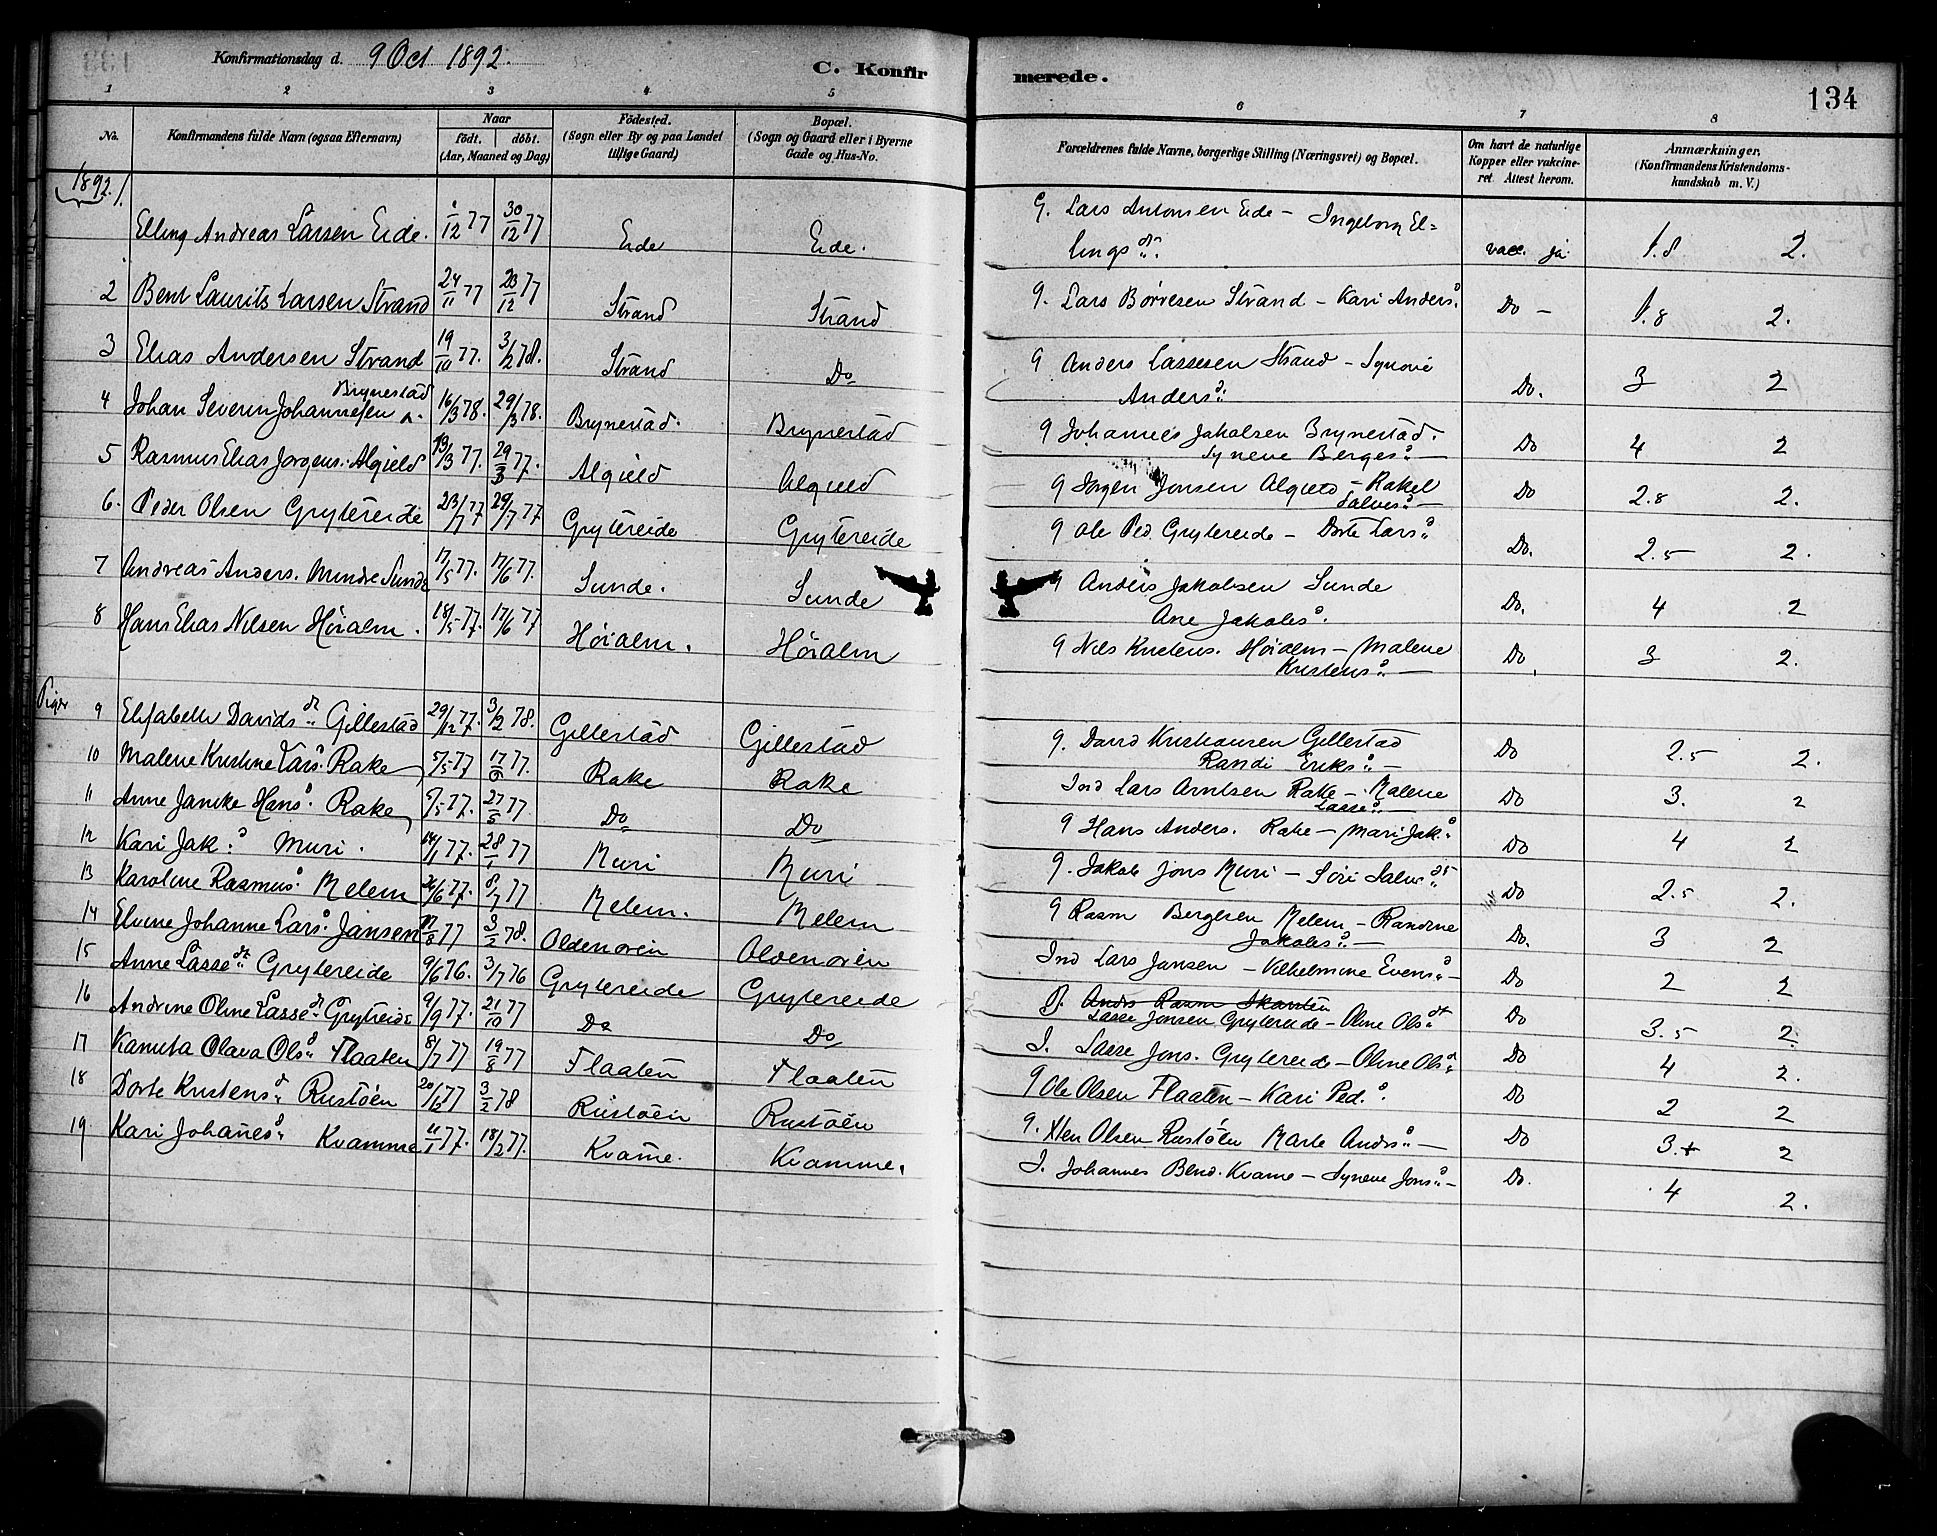 Konfirmationsdag d. 9 Oct 1892.
C. Konfirmerede.
134
1 2 3 4 5 6 7 8
No. | Konfirmandens fulde Navn (ogsaa Efternavn) | Naar födt. döbt. (Aar, Maaned og Dag) | Födested. (Sogn eller By og paa Landet tillige Gaard) | Bopæl. (Sogn og Gaard eller i Byerne Gade og Hus-No. | Forældrenes fulde Navne, borgerlige Stilling (Næringsvei) og Bopæl. | Om havt de naturlige Kopper eller vakcineret. Attest herom. | Anmærkninger, (Konfirmandens Kristendomskundskab m. V.)
1892.
1 Elling Andreas Larsen Eide. | /12 77 | 30/12 77 | Eide | Eide. | G. Lars Antonsen Eide – Ingeborg Ellings dr. | vacc. ja | 1.8 2.
2 Bent Laurits Larsen Strand | 24/11 77 | 23/12 77 | Strand | Strand | G. Lars Börresen Strand – Kari Anders d | Do – | 1.8 2.
3 Elias Andersen Strand | 19/10 77. | 3/2 78. | Strand | Do | G Anders Lassesen Strand – Synove Anders d. | Do. | 3 2
4 Johan Severin Johannesen Brynestad | 16/3 78. | 29/3 78. | Brynestad. | Brynestad | G Johannes Jakobsen Brynestad. Syneve Berges d – | Do | 4 2
5 Rasmus Elias Jorgens. Algield | 13/3 77. | 29/3 77. | Algield | Algield | G Jorgen Jonsen Algield – Rakel Salves d – | Do | 2.8 2.
6. Peder Olsen Grytereide | 23/7 77 | 29/7 77 | Grytereide | Grytereide | G Ole Ped. Grytereide – Dorte Lars d | Do. | 2.5 2.
7 Andreas Anders. Mindre Sunde | 17/5 77. | 17/6 77. | Sunde. | Sunde | G Anders Jakobsen Sunde Ane Jakobs d. | Do. | 4 2
8 Hans Elias Nilsen Höialm. | 18/5 77. | 17/6 77 | Höialm. | Höialm | G Nils Kristens. Höialm – Malene Kristens d – | Do. | 3 2.
Piger
9 Elisabeth Davids dr Gillestad | 29/12 77. | 3/2 78. | Gillestad | Gillestad | G. David Kristiansen Gillestad Randi Eriks d – | Do | 2.5 2.
10 Malene Kristine Lars d. Rake | 5/5 77 | 17/6 77. | Rake | Rake | Ind Lars Arntsen Rake – Malene Lasse d – | Do | 3. 2
11 Anne Janike Hans d. Rake | 5/5 77. | 27/5 77. | Do | Do | G Hans Anders. Rake – Mari Jak. d | Do | 4 2
12 Kari Jak. d Muri. | 14/1 77. | 28/1 77 | Muri | Muri | G. Jakob Jons Muri – Siri Salve dr | Do | 2.5 2.
13 Karoline Rasmus d Melem | 26/6 77. | 8/7 77 | Melem. | Melem | G Rasm Bergesen Melem – Rasmine Jakobs d – | Do. | 3 2
14 Elvine Johanne Lars d. Jansen | 17/8 77 | 3/2 78. | Oldenören | Oldenören | Ind Lars Jansen – Vilhelmine Evens d – | Do | 2 2
15 Anne Lasse dr. Grytereide | 9/6 76. | 3/7 76 | Grytereide | Grytereide | Lasse Jonsen Grytereide – Oline Ols dr | Do | 3.5 2.
16 Andrine Oline Lasse dr Grytereide | 9/9 77. | 21/10 77 | Do | Do | I. Lasse Jons. Grytereide – Oline Ols d | Do | 4 2.
17 Kanuta Olava Ols d Flaaten | 8/7 77 | 19/8 77 | Flaaten | Flaaten | G Ole Olsen Flaaten – Kari Ped. d. | Do | 2 2
18 Dorte Kristens d Rustöen | 20/12 77 | 3/2 78 | Rustöen | Rustöen | G. Olsen Rustöen Marte Anders d – | Do | 3.+ 2
19. Kari Johanes d. Kvamme | 11/1 77. | 18/2 77. | Kvame. | Kvamme. | I. Johannes Bend. Kvame – Syneve Jons d – | Do. | 4 2.